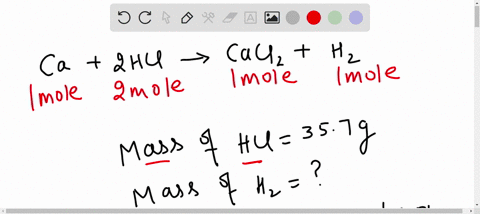 Ca + 2HCl → CaCl2 + H2
1mole 2mole 1mole 1mole
Mass of HCl = 35.7g
Mass of H2 = ?